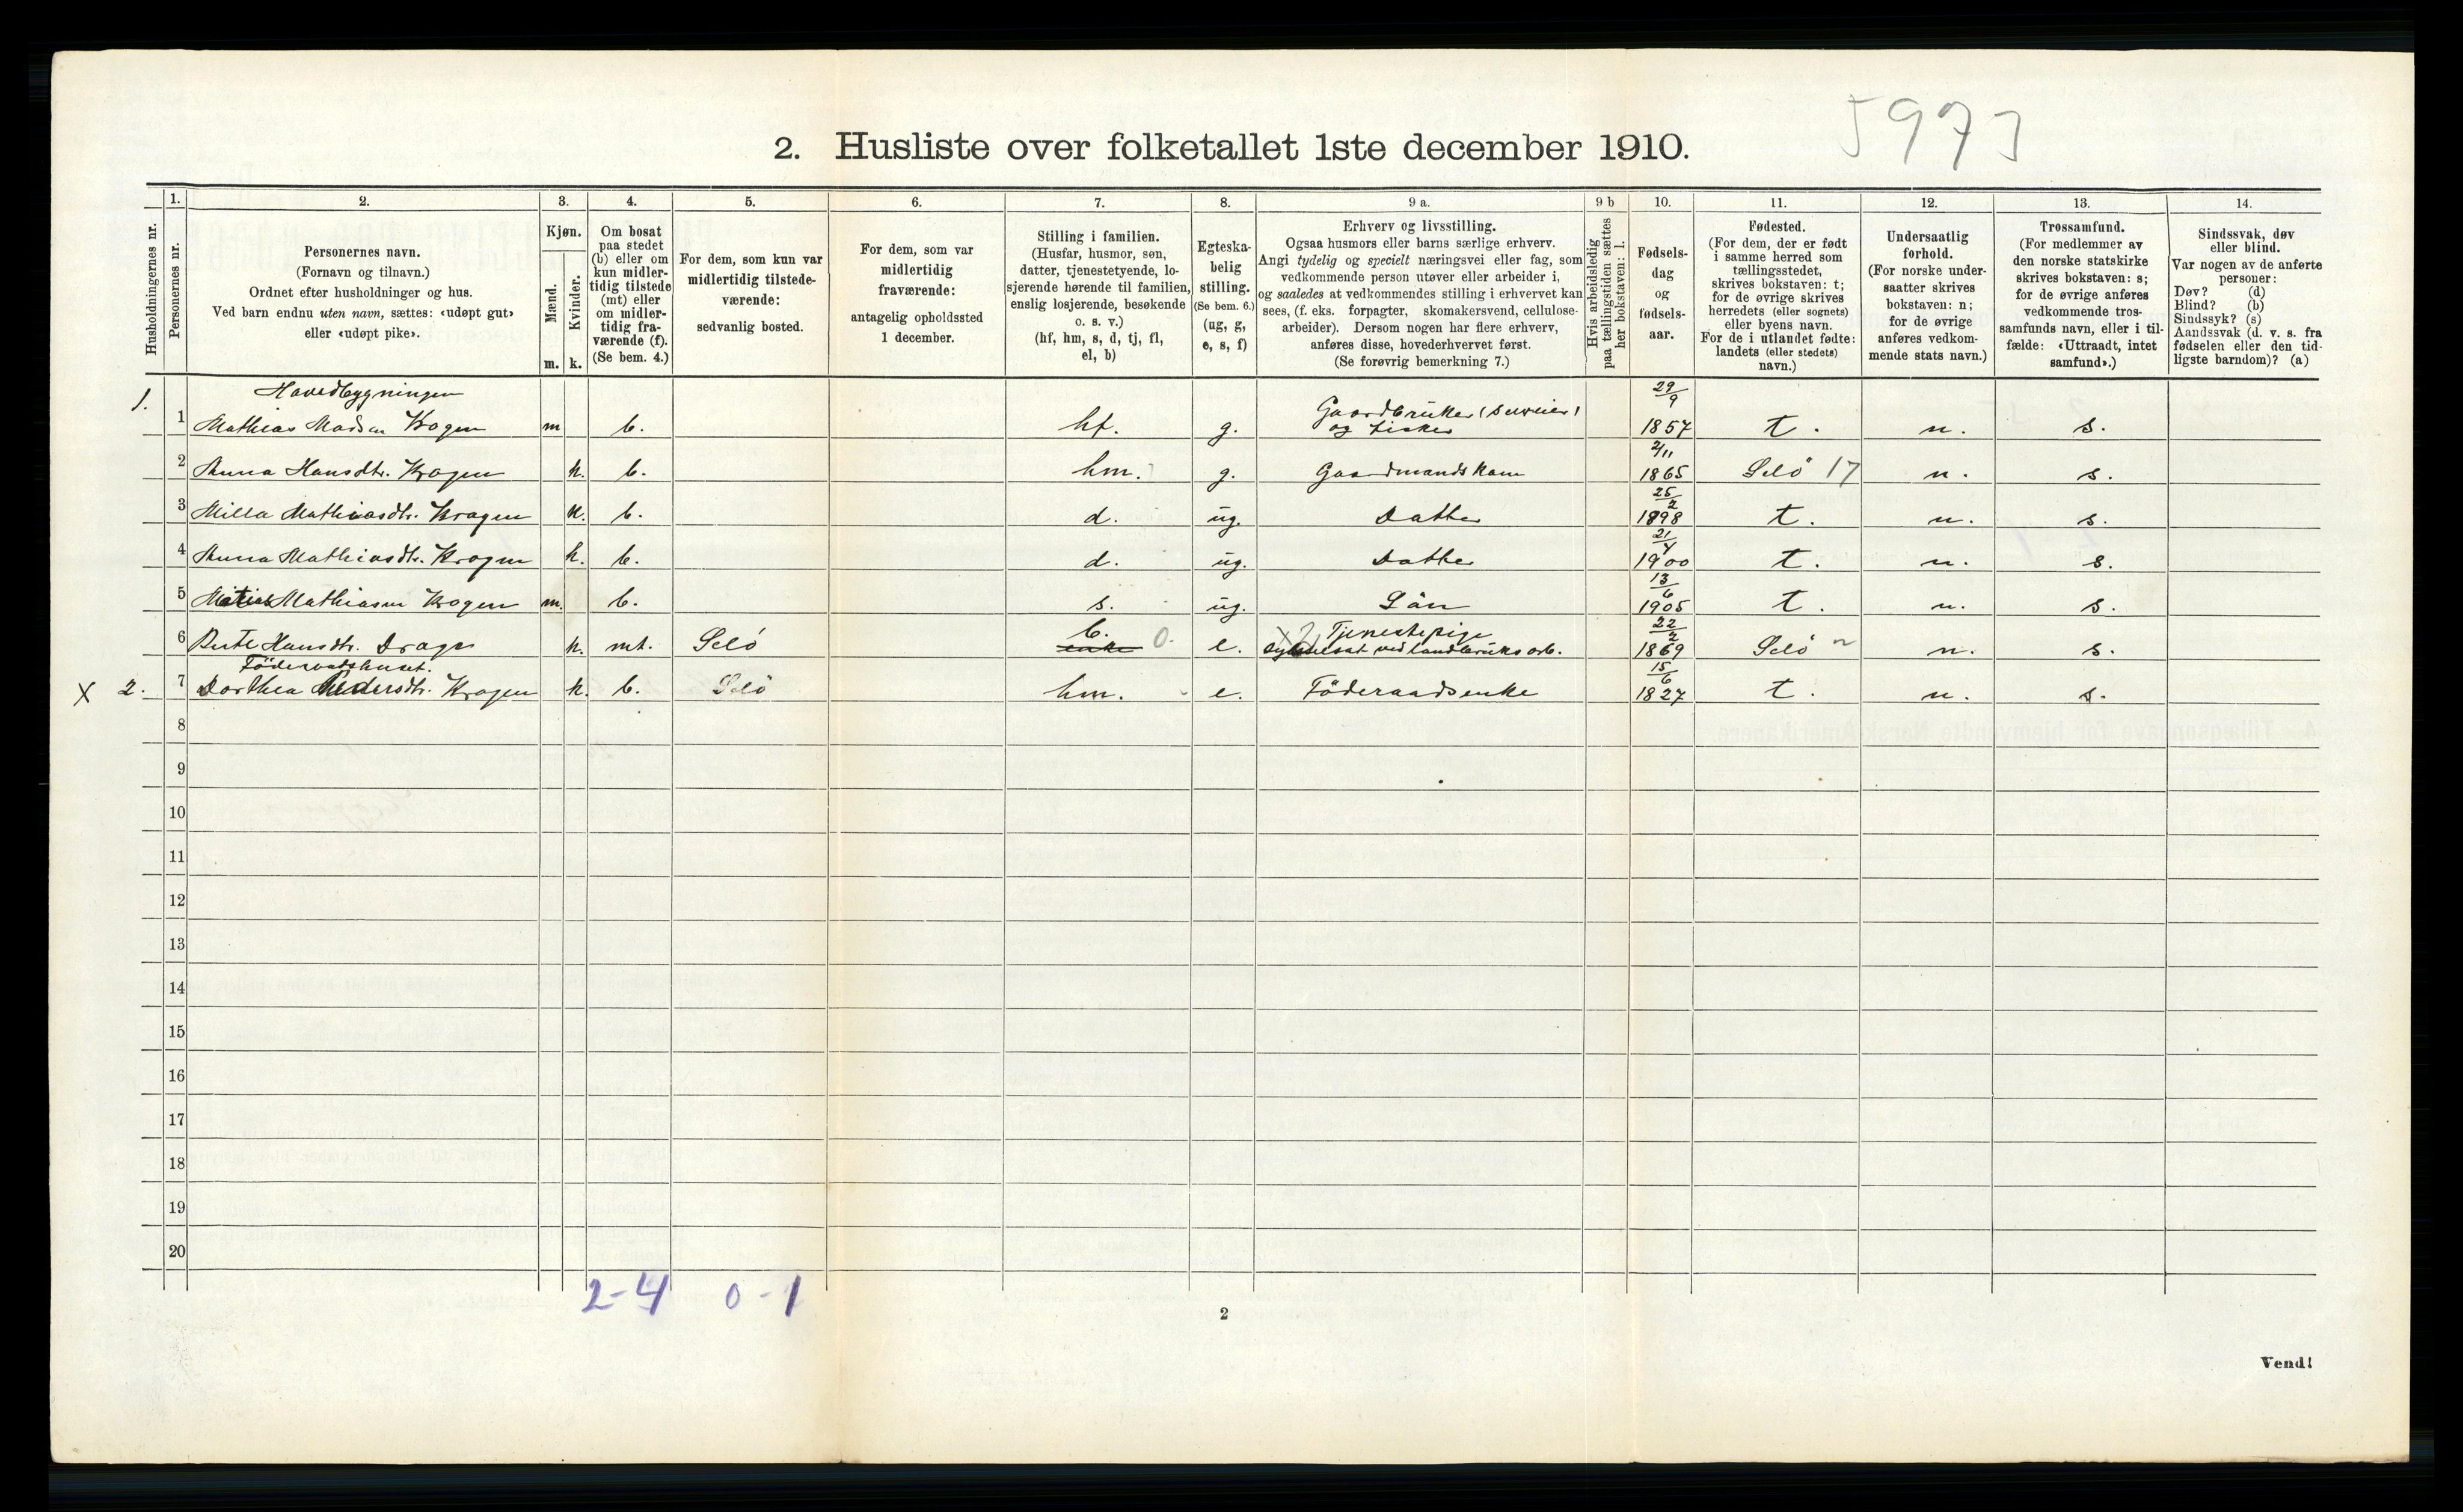 5973
2. Husliste over folketallet 1ste december 1910.
Husholdningernes nr.
1.
Personernes nr.
2.
Personernes navn.
(Fornavn og tilnavn.)
Ordnet efter husholdninger og hus.
Ved barn endnu uten navn, sættes: «udøpt gut»
eller «udøpt pike».
3.
Kjøn.
Mænd.
m.
Kvinder.
k.
4.
Om bosat
paa stedet
(b) eller om
kun midler-
tidig tilstede
(mt) eller
om midler-
tidig fra-
værende (f).
(Se bem. 4.)
5.
For dem, som kun var
midlertidig tilstede-
værende:
sedvanlig bosted.
6.
For dem, som var
midlertidig
fraværende:
antagelig opholdssted
1 december.
7.
Stilling i familien.
(Husfar, husmor, søn,
datter, tjenestetyende, lo-
sjerende hørende til familien,
enslig losjerende, besøkende
o. s. v.)
(hf, hm, s, d, tj, fl,
el, b)
8.
Egteska-
belig
stilling.
(Se bem. 6.)
(ug, g,
e, s, f)
9 a.
Erhverv og livsstilling.
Ogsaa husmors eller barns særlige erhverv.
Angi tydelig og specielt næringsvei eller fag, som
vedkommende person utøver eller arbeider i,
og saaledes at vedkommendes stilling i erhvervet kan
sees, (f. eks. forpagter, skomakersvend, cellulose-
arbeider). Dersom nogen har flere erhverv,
anføres disse, hovederhvervet først.
(Se forøvrig bemerkning 7.)
9 b
Hvis arbeidsledig
paa tællingstiden sættes
her bokstaven: l.
10.
Fødsels-
dag
og
fødsels-
aar.
11.
Fødested.
(For dem, der er født
i samme herred som
tællingsstedet,
skrives bokstaven: t;
for de øvrige skrives
herredets (eller sognets)
eller byens navn.
For de i utlandet fødte:
landets (eller stedets)
navn.)
12.
Undersaatlig
forhold.
(For norske under-
saatter skrives
bokstaven: n;
for de øvrige
anføres vedkom-
mende stats navn.)
13.
Trossamfund.
(For medlemmer av
den norske statskirke
skrives bokstaven: s;
for de øvrige anføres
vedkommende tros-
samfunds navn, eller i til-
fælde: «Uttraadt, intet
samfund».)
14.
Sindssvak, døv
eller blind.
Var nogen av de anførte
personer:
Døv? (d)
Blind? (b)
Sindssyk? (s)
Aandssvak (d. v. s. fra
fødselen eller den tid-
ligste barndom)? (a)
Hovedbygningen
1. 1 Mathias Madsen Kragen m b. hf. g. Gaardbruker (selveier) og fisker 29/9 1857 t. n. s.
2 Anna Hansdtr. Kragen k. b. hm. g. Gaardmandskone 2/11 1865 Selö 17 n. s.
3 Milla Mathiasdtr. Kragen k. b. d. ug. Datter 25/2 1898 t. n. s.
4 Anna Mathiasdtr. Kragen k. b. d. ug. Datter 21/4 1900 t. n. s.
5 Matias Mathiasen Kragen m. b. s. ug. Sön 13/6 1905 t. n. s.
6 Berte Hansdtr. Drage k. mt. Selö b. enke 0. e. Tjenestepige sysselsat ved landbruksarb. 22/2 1869 Selö n. s.
Föderaadshuset.
X 2. 7 Dorthea Pedersdtr. Kragen k. b. Selö hm. e. Föderaadsenke 15/6 1827 t. n. s.
8
9
10
11
12
13
14
15
16
17
18
19
20
2-4 0-1
2
Vend!